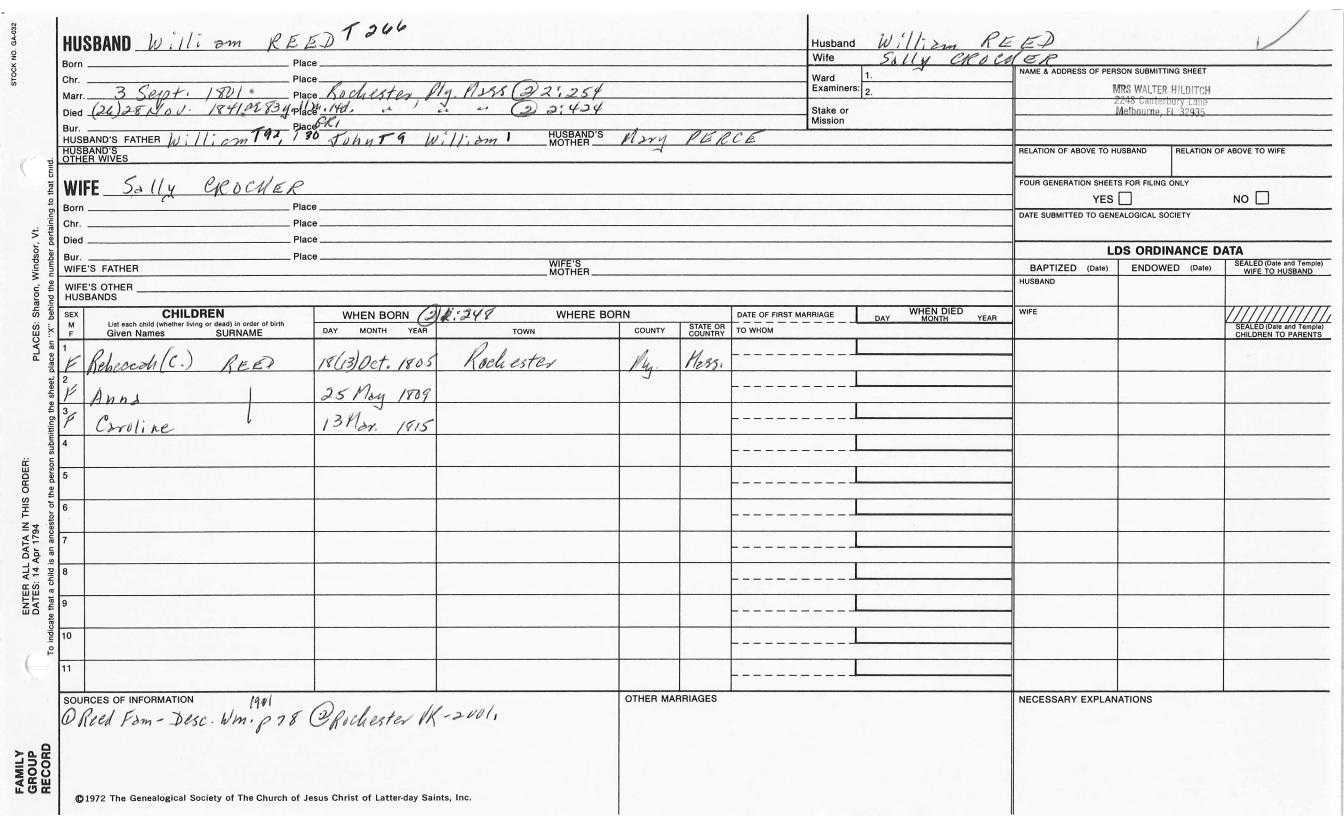 STOCK NO. GA-032
HUSBAND William REED T 266
Born Place
Chr. Place
Marr. 3 Sept. 1801 Place Rochester, Ply. Mass (2) 2:254
Died (26) 28 Nov. 1841 Place 14d. " " " (2) 2:424
Bur. Place GR1
HUSBAND'S FATHER William T92, John T9 William 1 HUSBAND'S MOTHER Mary PERCE
HUSBAND'S OTHER WIVES
WIFE Sally CROCKER
Born Place
Chr. Place
Died Place
Bur. Place
WIFE'S FATHER WIFE'S MOTHER
WIFE'S OTHER HUSBANDS
Husband William REED
Wife Sally CROCKER
Ward Examiners: 1. 2.
Stake or Mission
NAME & ADDRESS OF PERSON SUBMITTING SHEET
MRS WALTER HILDITCH
2248 Canterbury Lane
Melbourne, FL 32935
RELATION OF ABOVE TO HUSBAND RELATION OF ABOVE TO WIFE
FOUR GENERATION SHEETS FOR FILING ONLY
YES NO
DATE SUBMITTED TO GENEALOGICAL SOCIETY
LDS ORDINANCE DATA
BAPTIZED (Date) ENDOWED (Date) SEALED (Date and Temple) WIFE TO HUSBAND
HUSBAND
WIFE
SEALED (Date and Temple) CHILDREN TO PARENTS
SEX M F
CHILDREN
List each child (whether living or dead) in order of birth
Given Names SURNAME
WHEN BORN (2) 2:248 WHERE BORN
DAY MONTH YEAR TOWN COUNTY STATE OR COUNTRY
DATE OF FIRST MARRIAGE
TO WHOM
WHEN DIED
DAY MONTH YEAR
1 F Rebeccah (C.) REED 18(13) Oct. 1805 Rochester Ply. Mass.
2 F Anna | 25 May 1809
3 F Caroline 13 Mar. 1815
4
5
6
7
8
9
10
11
SOURCES OF INFORMATION
1901
(1) Reed Fam - Desc. Wm. p 78 (2) Rochester VR - 2 vols.
OTHER MARRIAGES
NECESSARY EXPLANATIONS
©1972 The Genealogical Society of The Church of Jesus Christ of Latter-day Saints, Inc.
PLACES: Sharon, Windsor, Vt.
To indicate that a child is an ancestor of the person submitting the sheet, place an "X" behind the number pertaining to that child.
ENTER ALL DATA IN THIS ORDER:
DATES: 14 Apr 1794
FAMILY
GROUP
RECORD